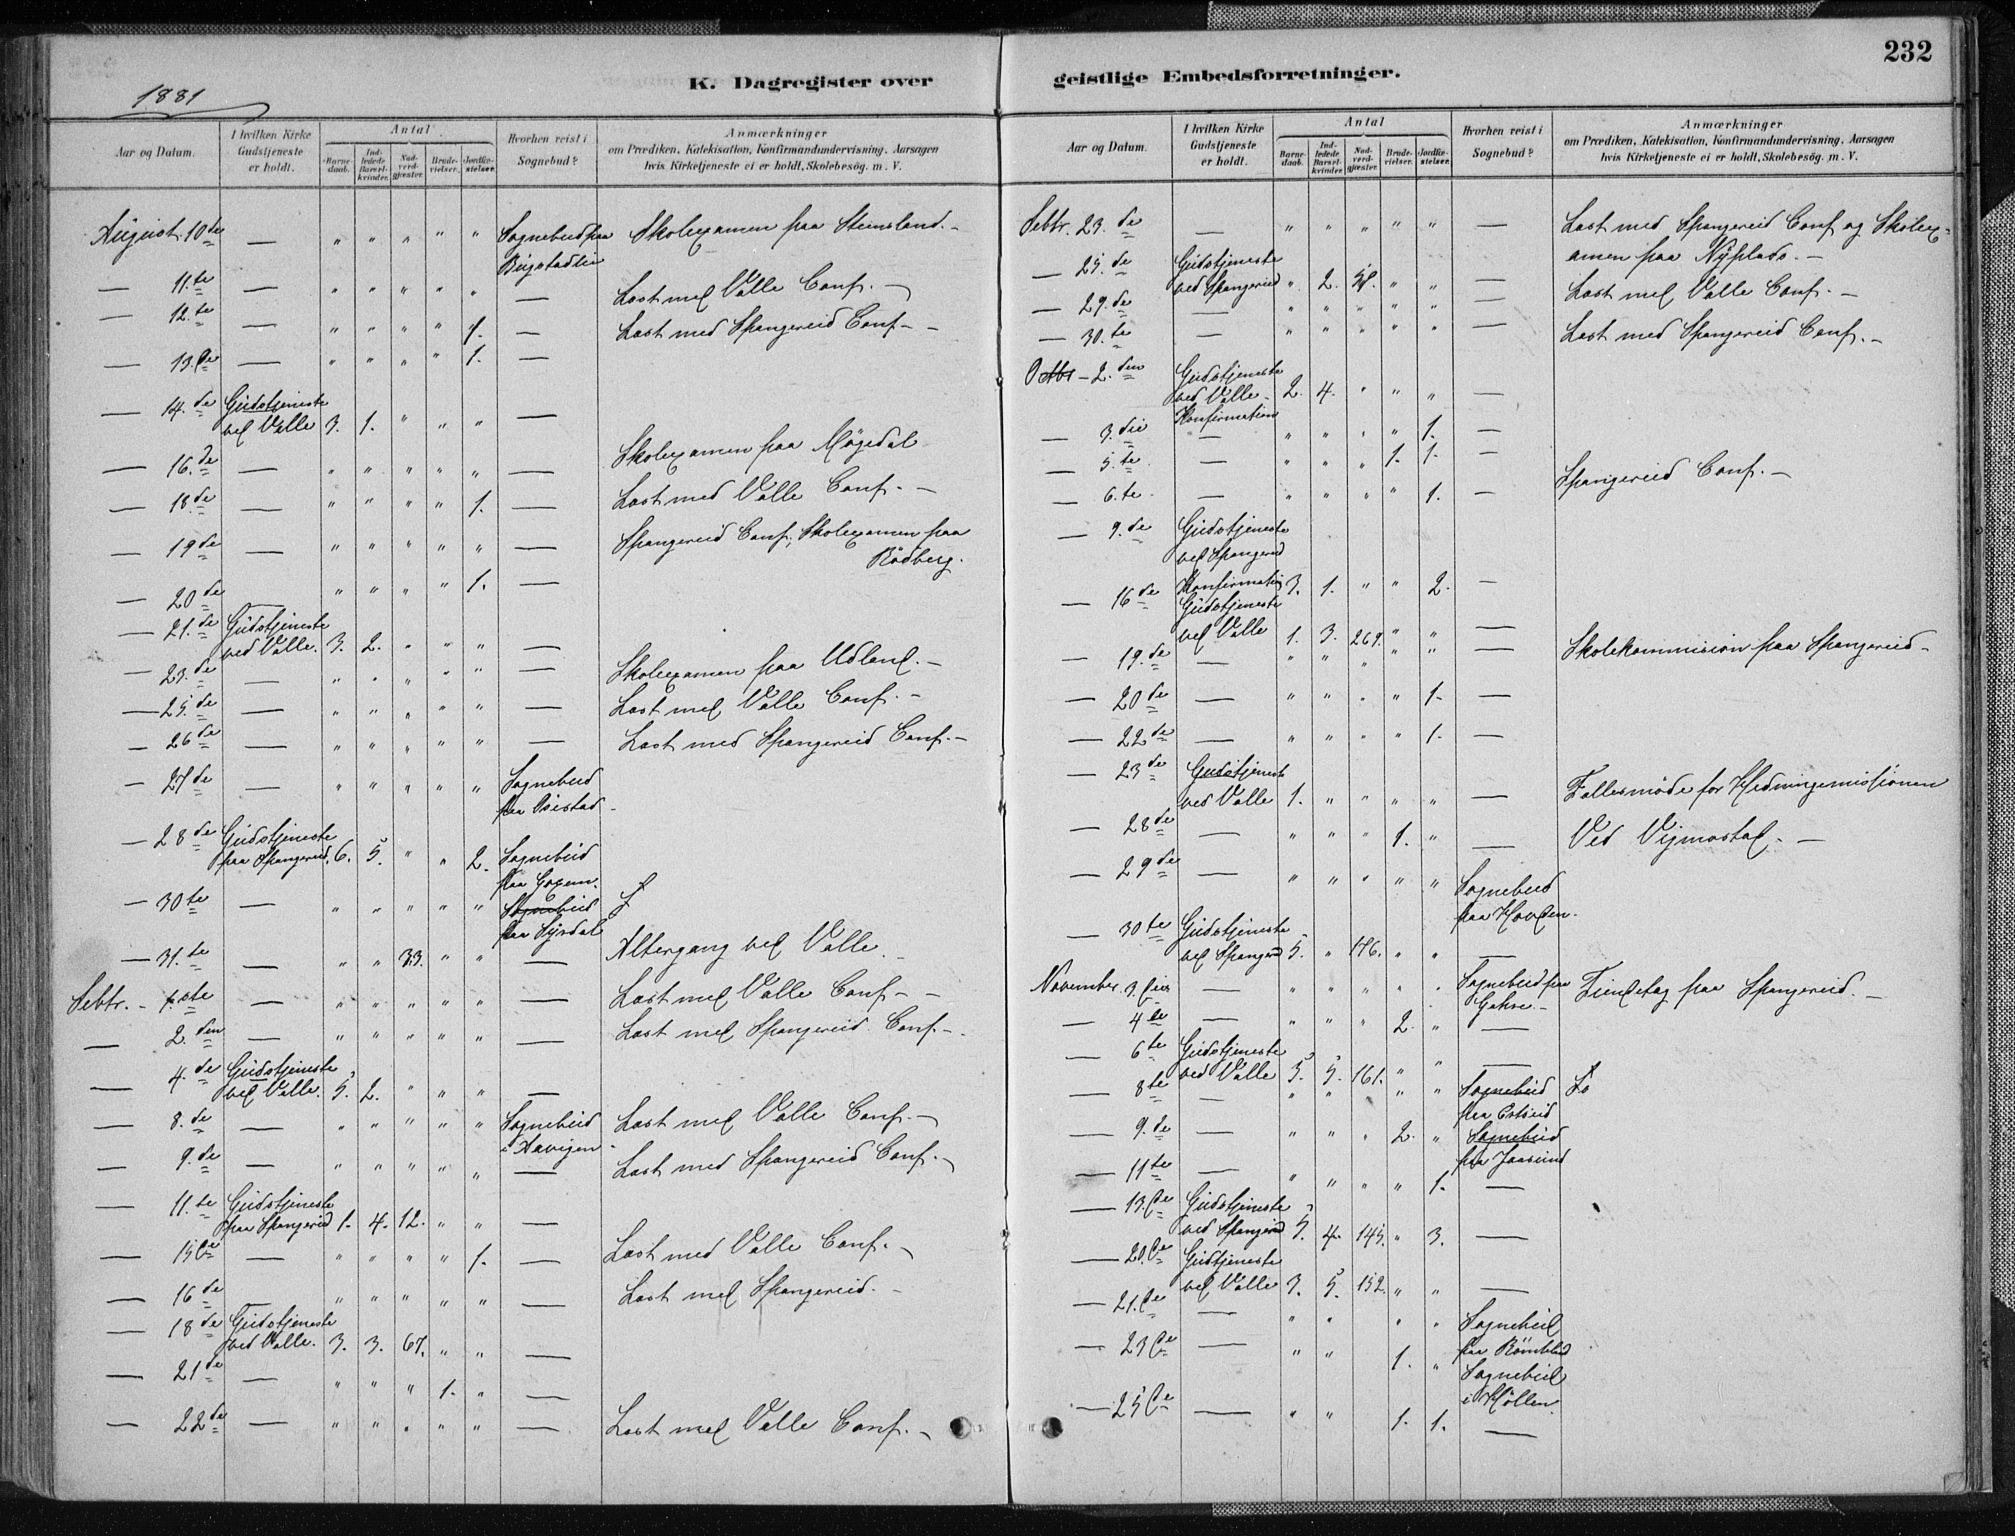 232
K. Dagregister over geistlige Embedsforretninger.
1881
Aar og Datum.
I hvilken Kirke Gudstjeneste er holdt.
Antal
Barnedaab.
Indledede Barselkvinder.
Nadverdgjæster.
Brudevielser.
Jordfæstelser.
Hvorhen reist i Sognebud?
Anmærkninger
om Prædiken, Katekisation, Konfirmandundervisning, Aarsagen
hvis Kirketjeneste ei er holdt, Skolebesøg. m. V.
August 10de — " " " " " Sognebud paa Skolexamen paa Steinsland. -
— 11.te — " " " " " — Læst med Valle Conf. —
— 12.te — " " " " 1. — Læst med Spangereid Conf. -
— 13.de — " " " " 1. —
— 14.de Gudstjeneste
ved Valle 3. 1. " " " —
— 16.de — " " " " " — Skolexamen paa Møgedal
— 18.de — " " " " 1. — Læst med Valle Conf. —
— 19de — " " " " " — Spangereid Conf. Skolexamen paa
Rödberg.
— 20de — " " " " 1. —
— 21.de Gudstjeneste
ved Valle. 3. 2. " " " —
— 23.de — " " " " " — Skolexamen paa Udland. -
— 25.de — " " " " " — Læst med Valle Conf. -
— 26de — " " " " " — Læst med Spangereid Conf. -
— 27de — " " " " " Sognebud
— 28de Gudstjeneste
paa Spangereid. 6. 5. " " 2. Sognebud
— 30te — " " " " " Sognebud
— 31.te — " " 33. " " — Altergang ved Valle.
Sebtr. - 1.ste — " " " " " — Læst med Valle Conf. -
— 2.den — " " " " " — Læst med Spangereid Conf. -
— 4.de Gudstjeneste
ved Valle. 5. 2. " " " —
— 8.de — " " " " " Sognebud Læst med Valle Conf. —
i Havigen
— 9.de — " " " " " — Læst med Spangereid Conf. -
— 11.te Gudstjeneste
paa Spangereid 1. 4. 12. " " —
— 15de — " " " " 1. — Læst med Valle Conf. -
— 16de — " " " " " — Læst med Spangereid. -
— 18de Gudstjeneste
ved Valle. 3. 3. 67. " " —
— 21de — " " " 1. " —
— 22de — " " " " " — Læst med Valle Conf. -
Aar og Datum.
I hvilken Kirke Gudstjeneste er holdt.
Antal
Barnedaab.
Indledede Barselkvinder.
Nadverdgjæster.
Brudevielser.
Jordfæstelser.
Hvorhen reist i Sognebud?
Anmærkninger
om Prædiken, Katekisation, Konfirmandundervisning, Aarsagen
hvis Kirketjeneste ei er holdt, Skolebesøg. m. V.
Sebtr. 23.de — " " " " " — Læst med Spangereid Conf og Skolex-
amen paa Nyplads. -
— 25.de Gudstjeneste
ved Spangereid " 2. " " —
— 29.de — " " " " " — Læst med Valle Conf. -
— 30.te — " " " " " — Læst med Spangereid Conf. -
Octbr - 2.den Gudstjeneste
ved Valle - 2. 4. " " " —
Konfirmation
— 3.die — " " " " 1. —
— 5.te — " " " 1. 1. —
— 6.te — " " " " 1. — Spangereid Conf. -
9.de Gudstjeneste
ved Spangereid
Konfirmation 3. 1. " " 2. —
— 16de Gudstjeneste
ved Valle 1. 3. 269. " " —
— 19.de — " " " " " — Skolekommission paa Spangereid -
— 20de — " " " " 1. —
— 22de — " " " " 1. —
— 23de Gudstjeneste
ved Valle 1. " " " " — Fællesmøde for Hedningemissionen
— 28de — " " " 1. " — Ved Vigmostad. -
— 29de — " " " " " Sognebud
paa Hovden.
— 30te Gudstjeneste
ved Spangereid 5. " 176. " " —
November 3.die — " " " " " Sognebud paa Tiendetag paa Spangereid. -
— 4de — " " " 2. " —
— 6te Gudstjeneste
ved Valle 5. 5. 161. " " —
— 8te — " " " " Sognebud
— 9.de — " " " 2. " Sognebud
paa Jaasund
— 11te — " " " " 1. —
— 13de Gudstjeneste
ved Spangereid 5. 4. 145. " 3. —
— 20.de Gudstjeneste
ved Valle 3. 5. 152. " " —
— 21.de — " " " " Sognebud
— 23de — " " 1. " Sognebud
i Höllen.
— 25de — " " 1. 1. —